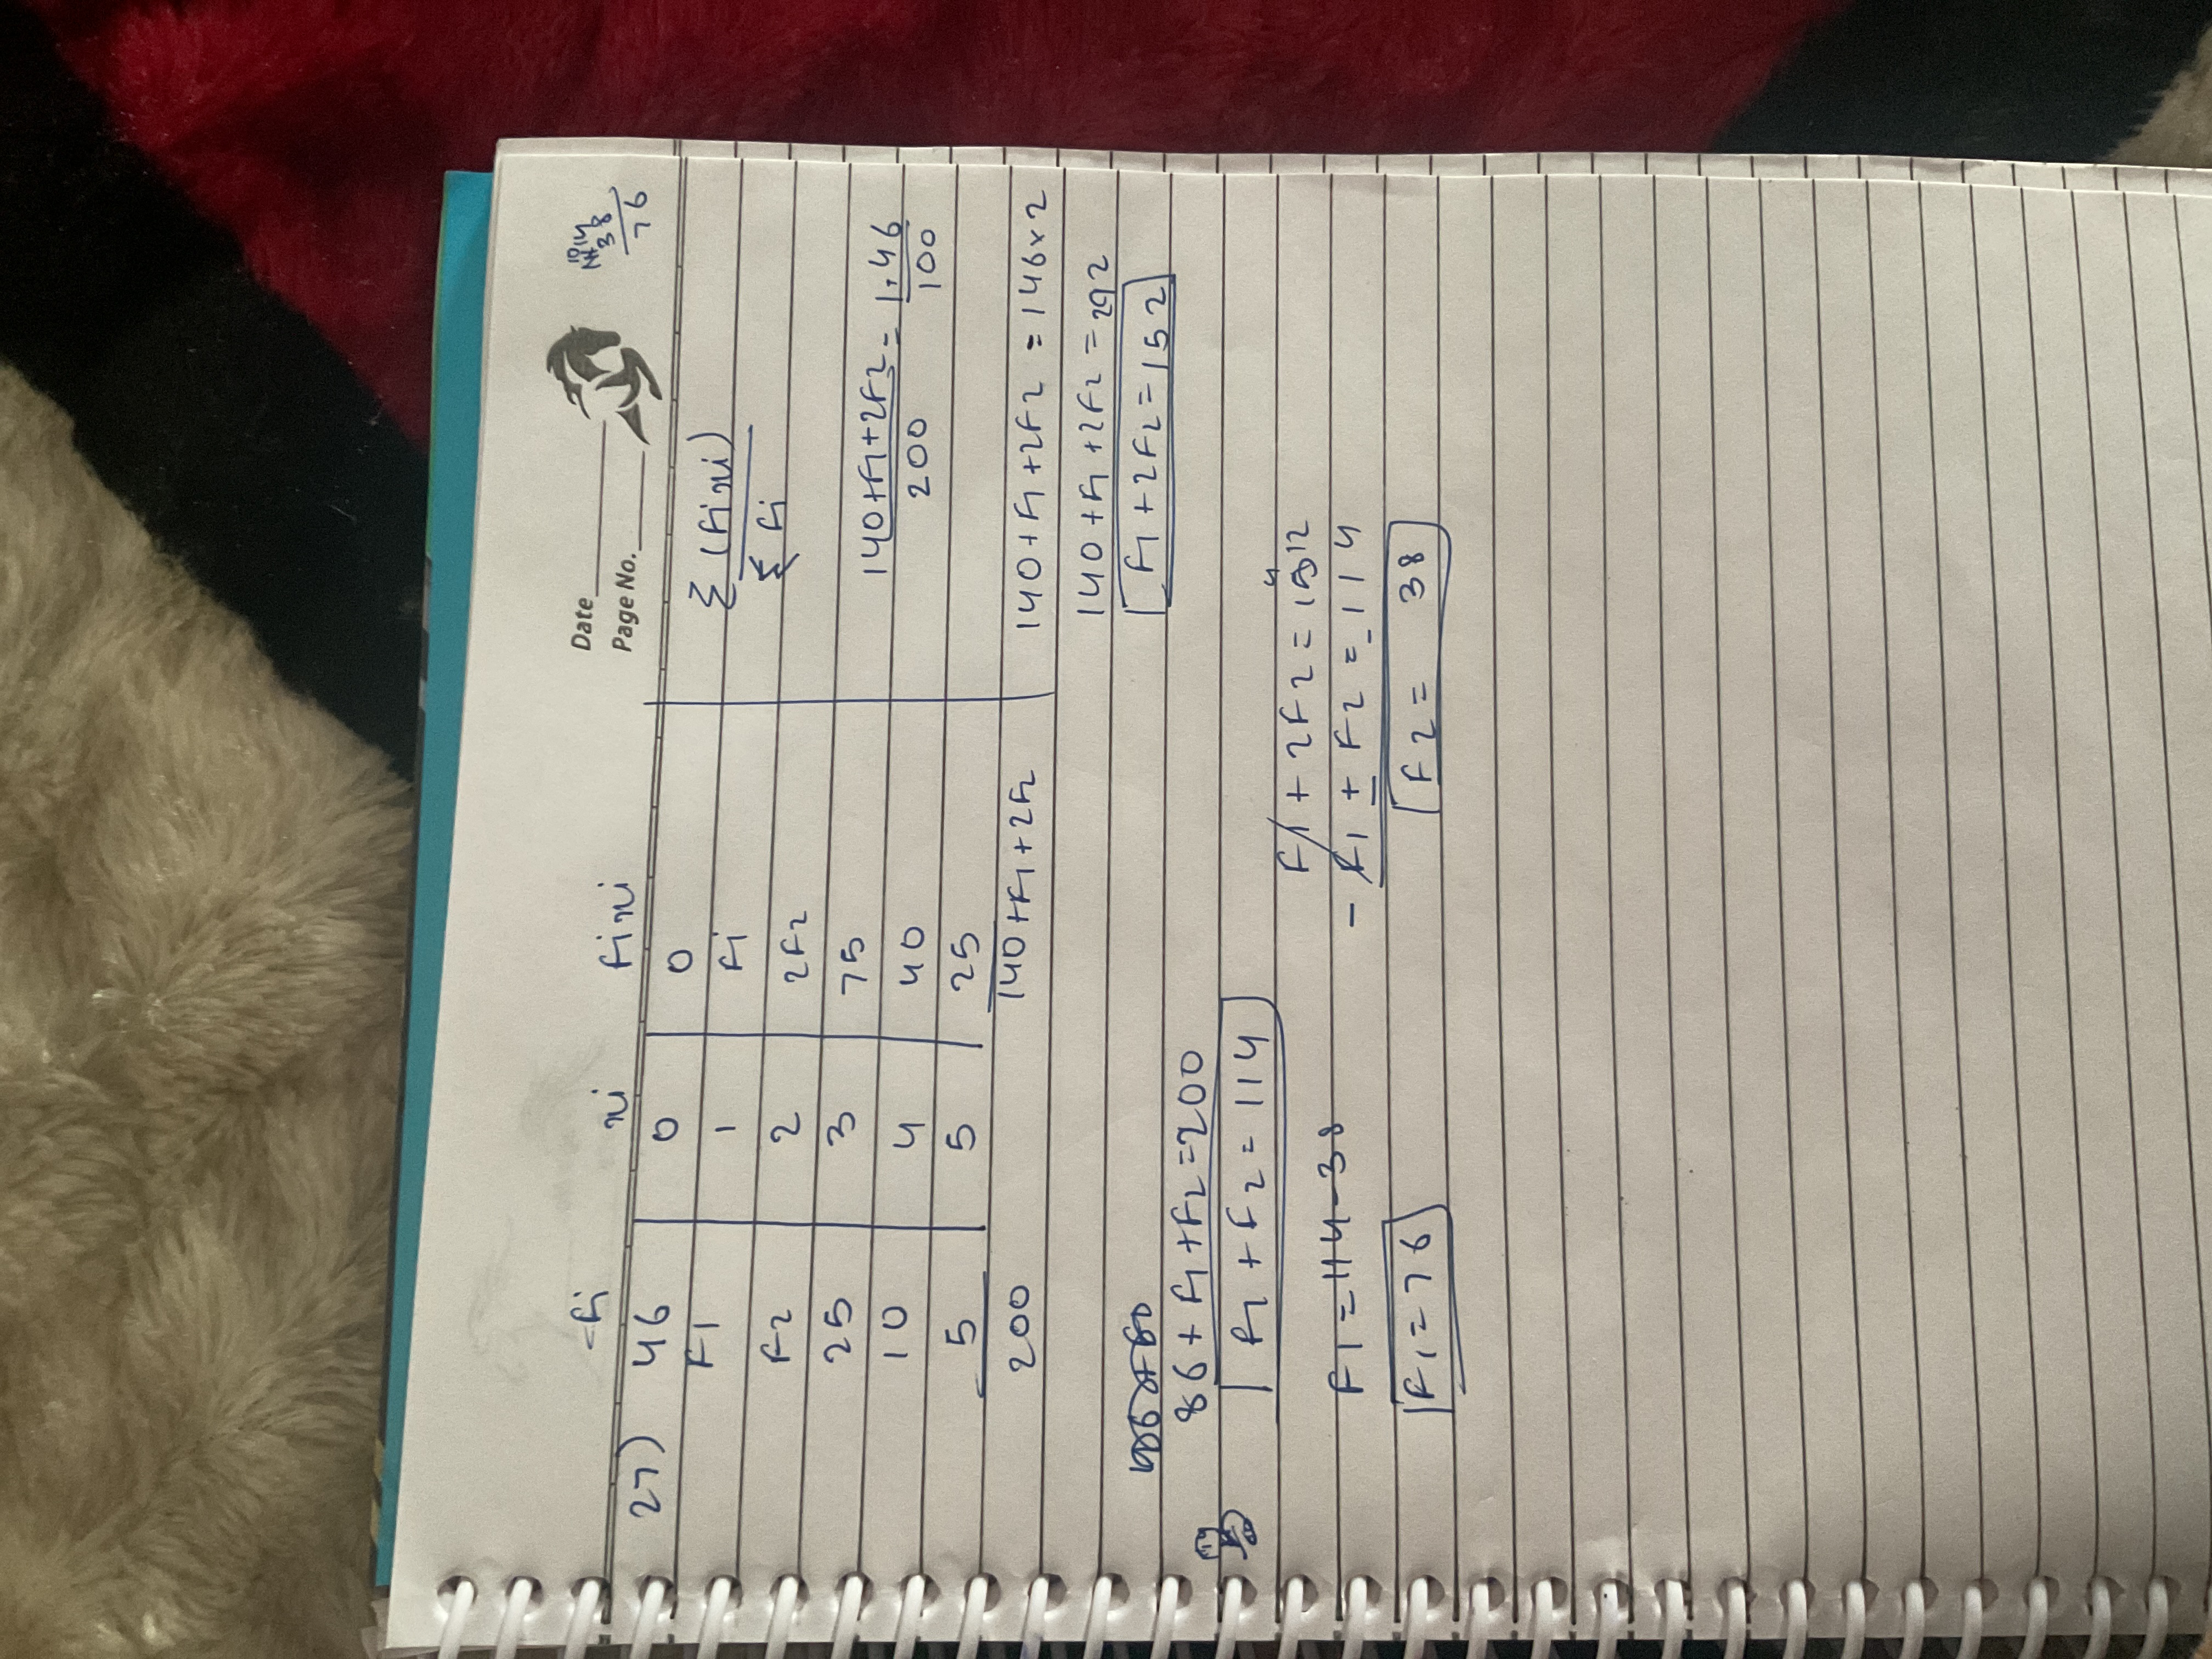 Date
Page No.
114
38
76
fi xi fixi
27) 46 0 0
F1 1 F1
F2 2 2F2
25 3 75
10 4 40
5 5 25
200 140+F1+2F2
Σ(fixi)
Σfi
140+F1+2F2 = 1.46
200 100
140+F1+2F2 = 146×2
140+F1+2F2 = 292
F1+2F2=152
86+F1+F2=200
F1+F2=114
F1+2F2=152
-F1+F2=114
F2= 38
F1=114-38
F1=76